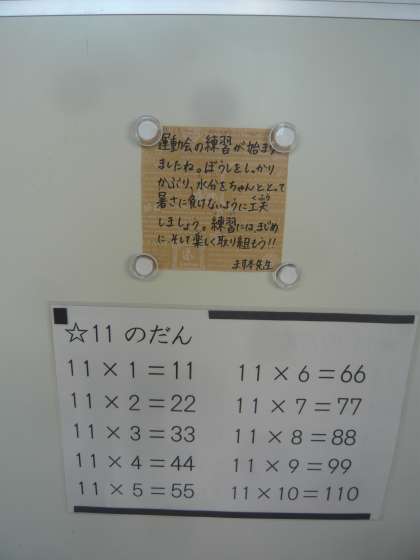 運動会の練習が始まり
ましたね。ぼうしをしっかり
かぶり、水分をちゃんととって
暑さに負けないように工夫
くふう
しましょう。練習にはまじめ
に、そして楽しく取り組もう!!
☆11のだん
11×1=11
11×2=22
11×3=33
11×4=44
11×5=55
11×6=66
11×7=77
11×8=88
11×9=99
11×10=110